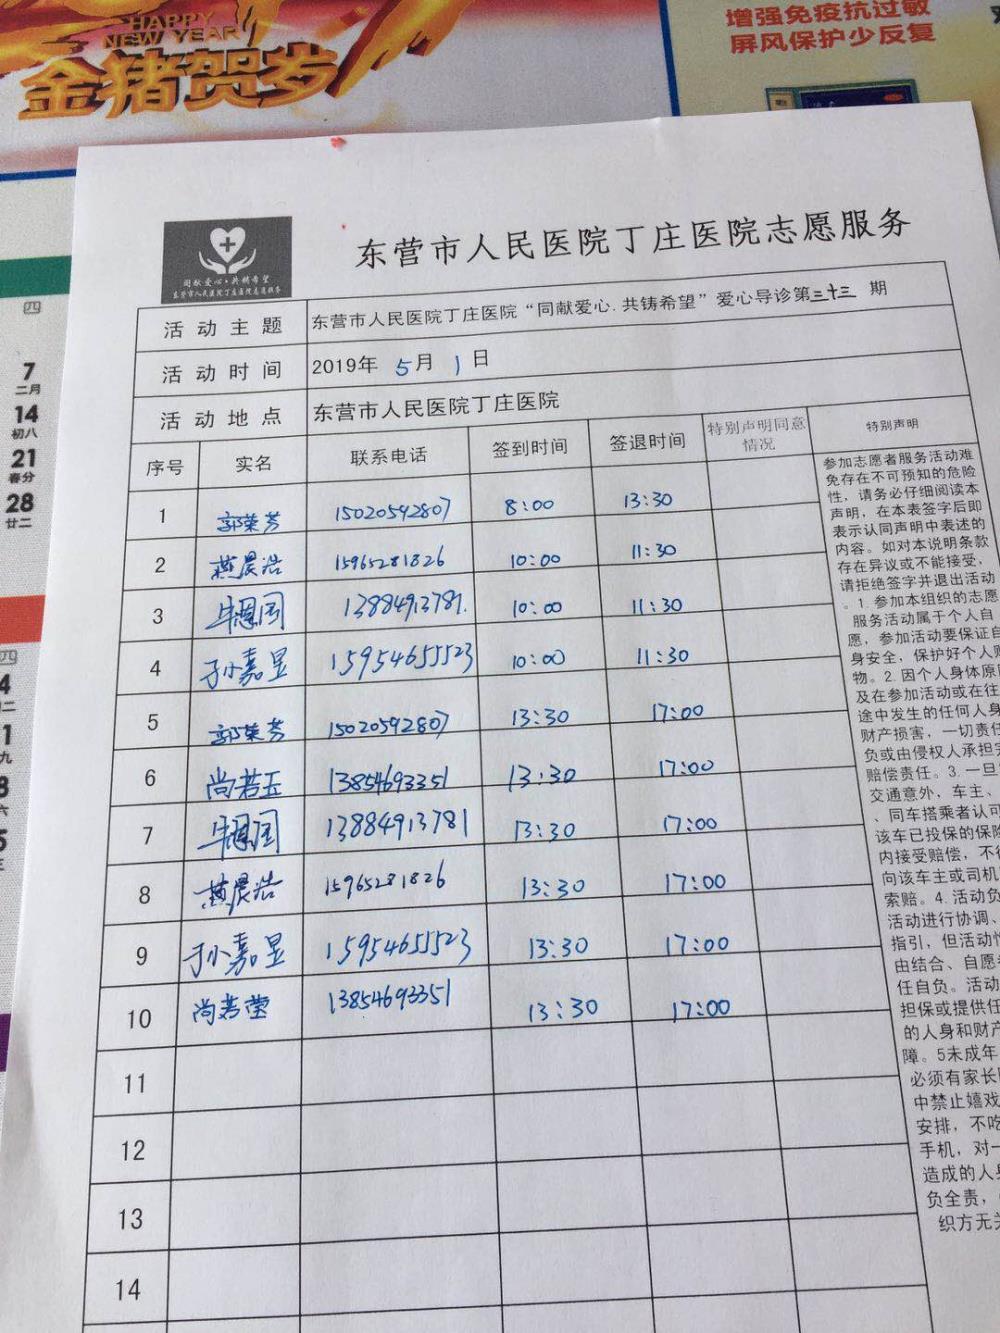 HAPPY
NEW YEAR
金猪贺岁
增强免疫抗过敏
屏风保护少反复
四
7
二月
14
初八
21
春分
28
廿二
同献爱心·共铸希望
东营市人民医院丁庄医院志愿服务
东营市人民医院丁庄医院志愿服务
活动主题 东营市人民医院丁庄医院“同献爱心.共铸希望”爱心导诊第三十三期
活动时间 2019年 5月 1日
活动地点 东营市人民医院丁庄医院
序号 实名 联系电话 签到时间 签退时间 特别声明同意情况 特别声明
1 郭荣芳 15020592807 8:00 13:30
2 燕晨浩 15965281826 10:00 11:30
3 牛恩国 13884913781. 10:00 11:30
4 于小嘉昱 15954655523 10:00 11:30
5 郭荣芳 15020592807 13:30 17:00
6 尚若玉 13854693351 13:30 17:00
7 牛恩国 13884913781 13:30 17:00
8 燕晨浩 15965281826 13:30 17:00
9 于小嘉昱 15954655523 13:30 17:00
10 尚若莹 13854693351 13:30 17:00
11
12
13
14
参加志愿者服务活动难
免存在不可预知的危险
性，请务必仔细阅读本
声明，在本表签字后即
表示认同声明中表述的
内容。如对本说明条款
存在异议或不能接受，
请拒绝签字并退出活动
。1. 参加本组织的志愿
服务活动属于个人自
愿，参加活动要保证自
身安全，保护好个人财
物。2. 因个人身体原因
及在参加活动或在往
途中发生的任何人身
财产损害，一切责任
负或由侵权人承担
赔偿责任。3. 一旦
交通意外，车主、
、同车搭乘者认可
该车已投保的保险
内接受赔偿，不得
向该车主或司机
索赔。4. 活动负
活动进行协调、
指引，但活动性
由结合、自愿
任自负。活动
担保或提供任
的人身和财产
障。5未成年
必须有家长
中禁止嬉戏
安排，不吃
手机，对一
造成的人身
负全责，
织方无关